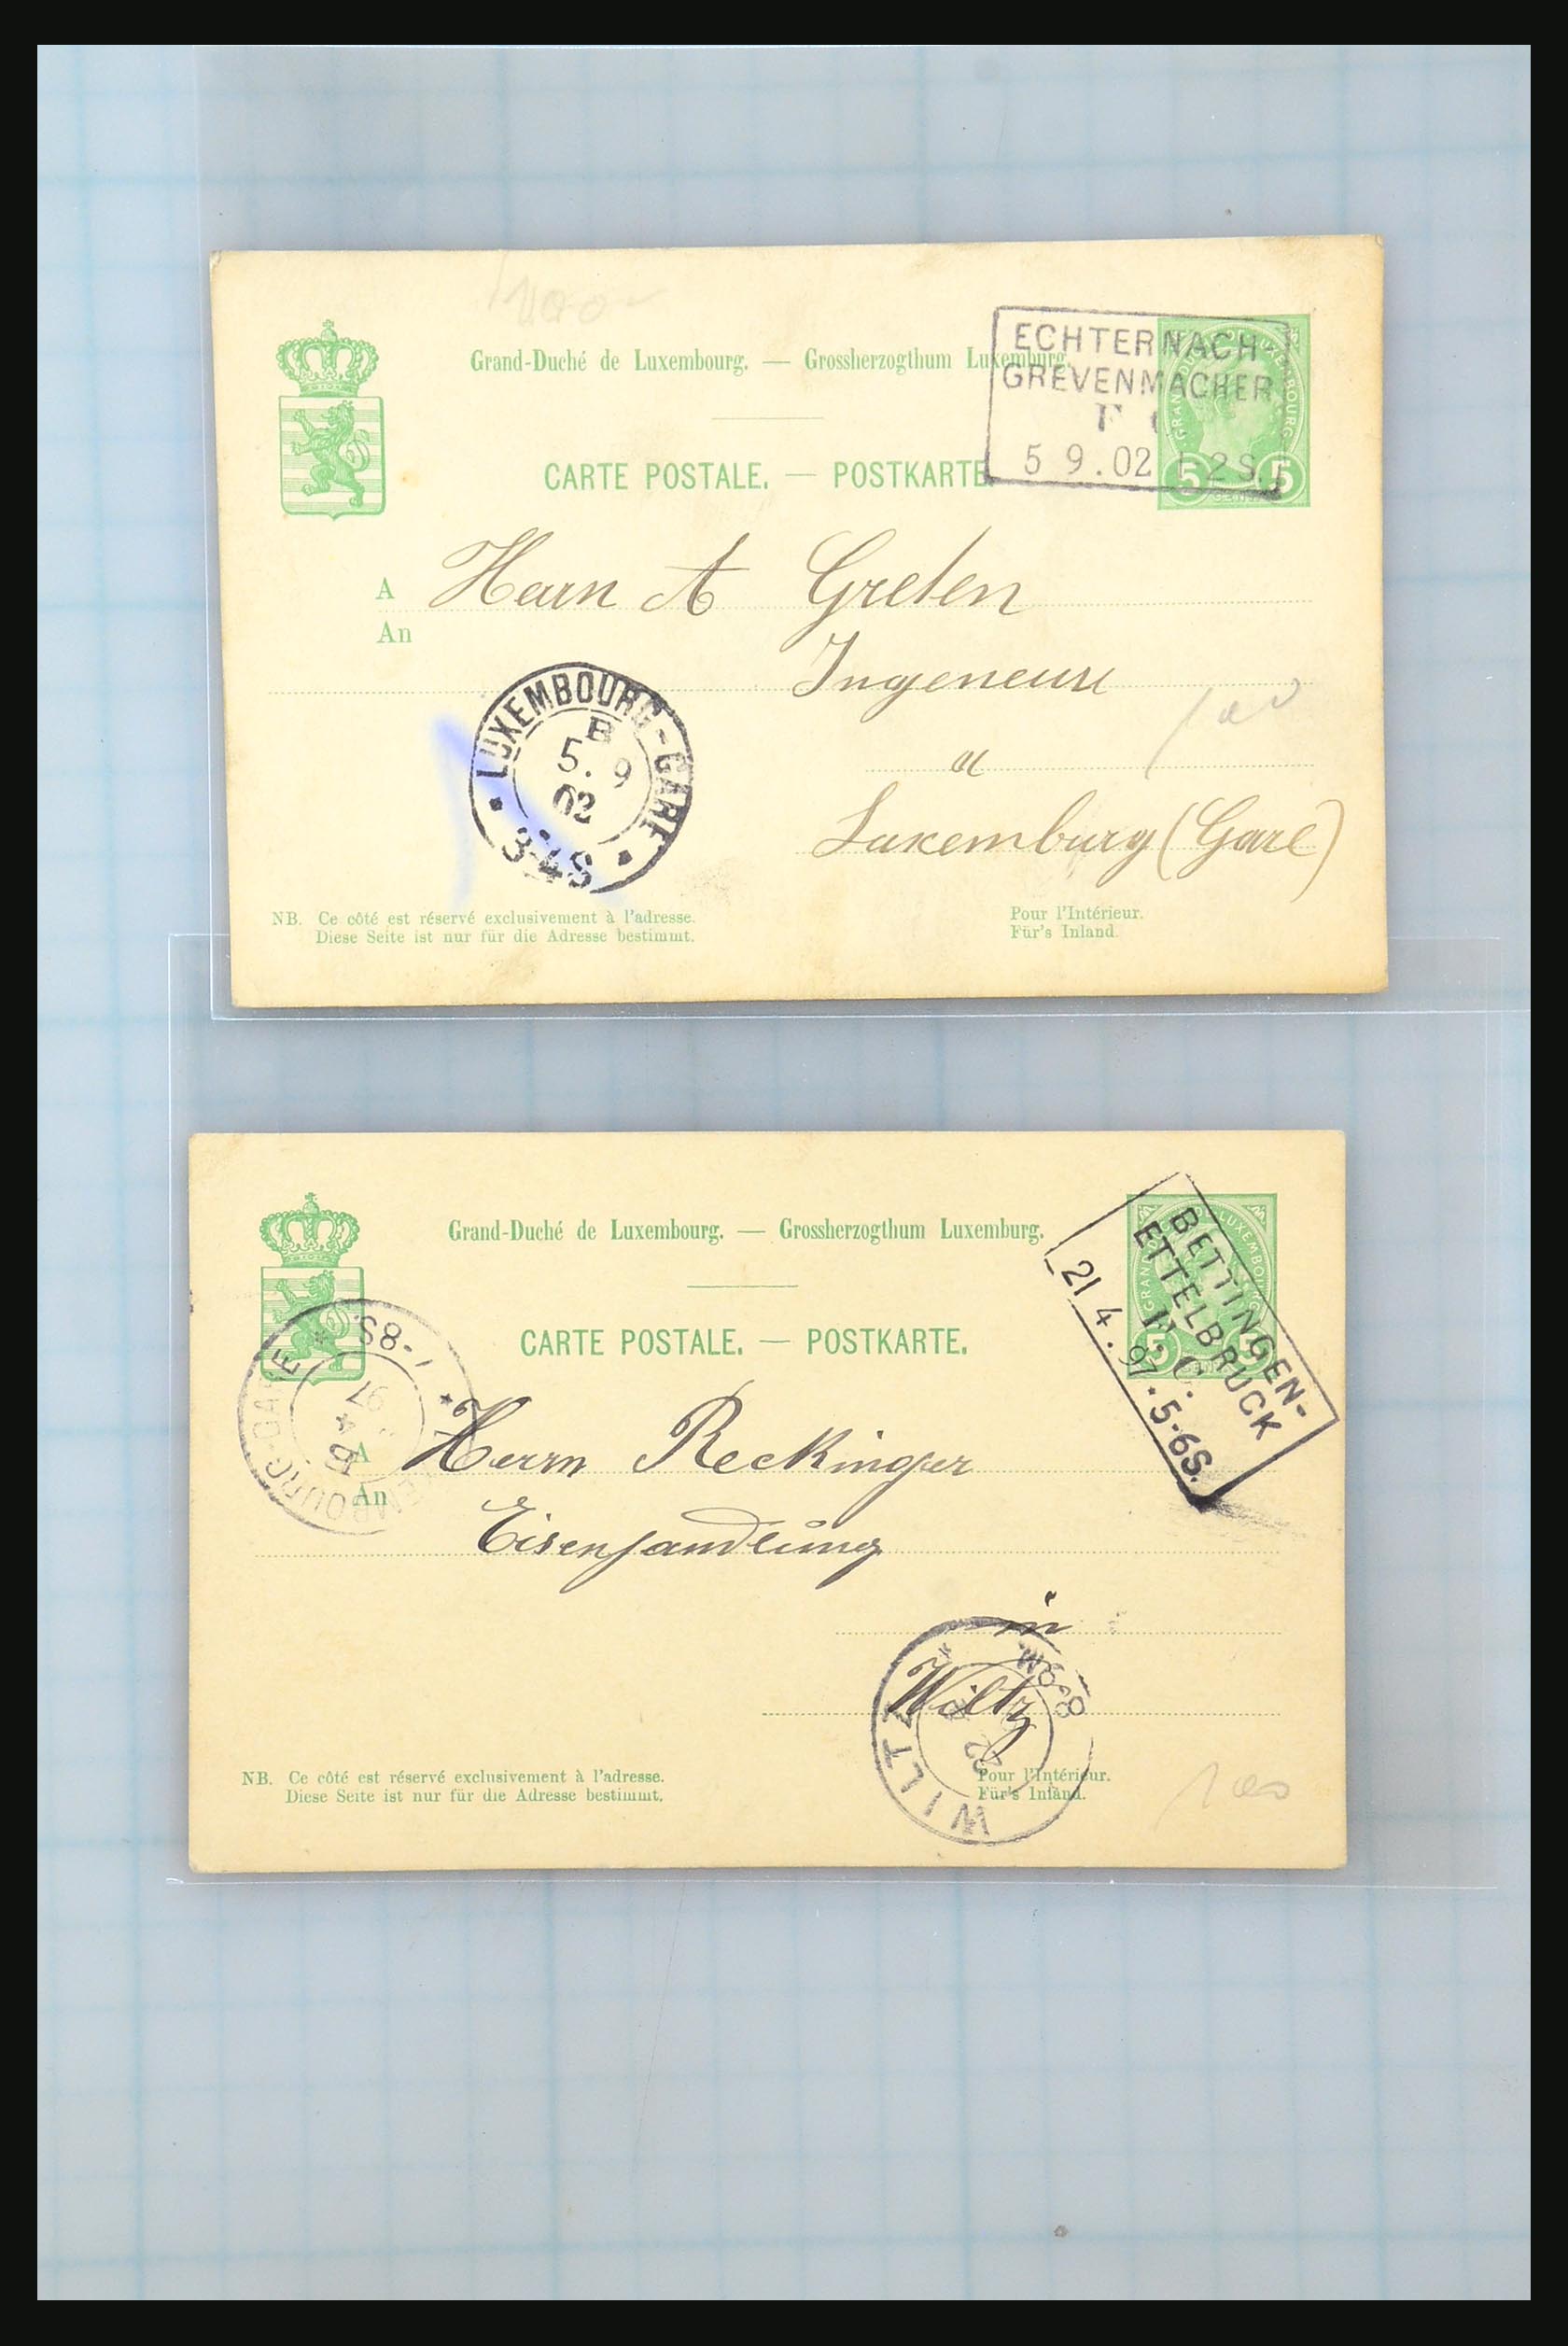 Grand-Duché de Luxembourg. — Grossherzogthum Luxemburg.
ECHTERNACH
GREVENMACHER
F
5 9.02 1-2S.
5 5
CARTE POSTALE. — POSTKARTE.
A Herrn A Greten
An
Ingeneure
a
Luxemburg (Gare)
LUXEMBOURG-GARE
B
5. 9
02
3-4S
100
NB. Ce côté est réservé exclusivement à l'adresse.
Diese Seite ist nur für die Adresse bestimmt.
Pour l'Intérieur.
Für's Inland.
Grand-Duché de Luxembourg. — Grossherzogthum Luxemburg.
BETTINGEN-
ETTELBRUCK
F. C.
21 4.97.5-6S.
CARTE POSTALE. — POSTKARTE.
7-8S.
97
A Herrn Reckinger
An
Eisenhandlung
in
Wiltz
WILTZ
22
8-9M.
NB. Ce côté est réservé exclusivement à l'adresse.
Diese Seite ist nur für die Adresse bestimmt.
Pour l'Intérieur.
Für's Inland.
100